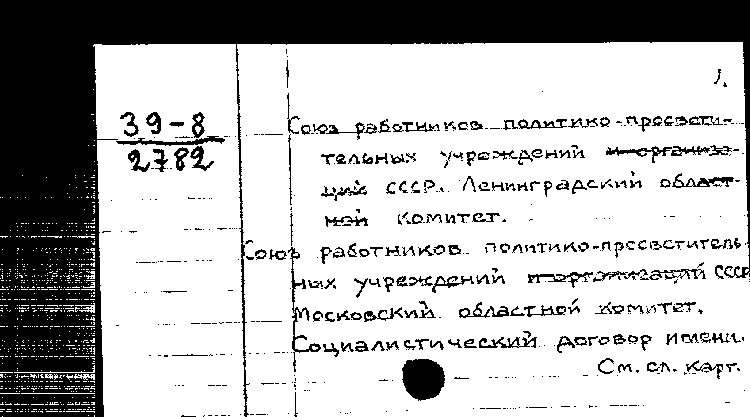 1.
39-8
2782
Союз работников политико-просвети-
тельных учреждений и организа-
ций СССР. Ленинградский област-
ной комитет.
Союз работников политико-просветитель-
ных учреждений и организаций СССР
Московский областной комитет.
Социалистический договор имени.
См. сл. карт.